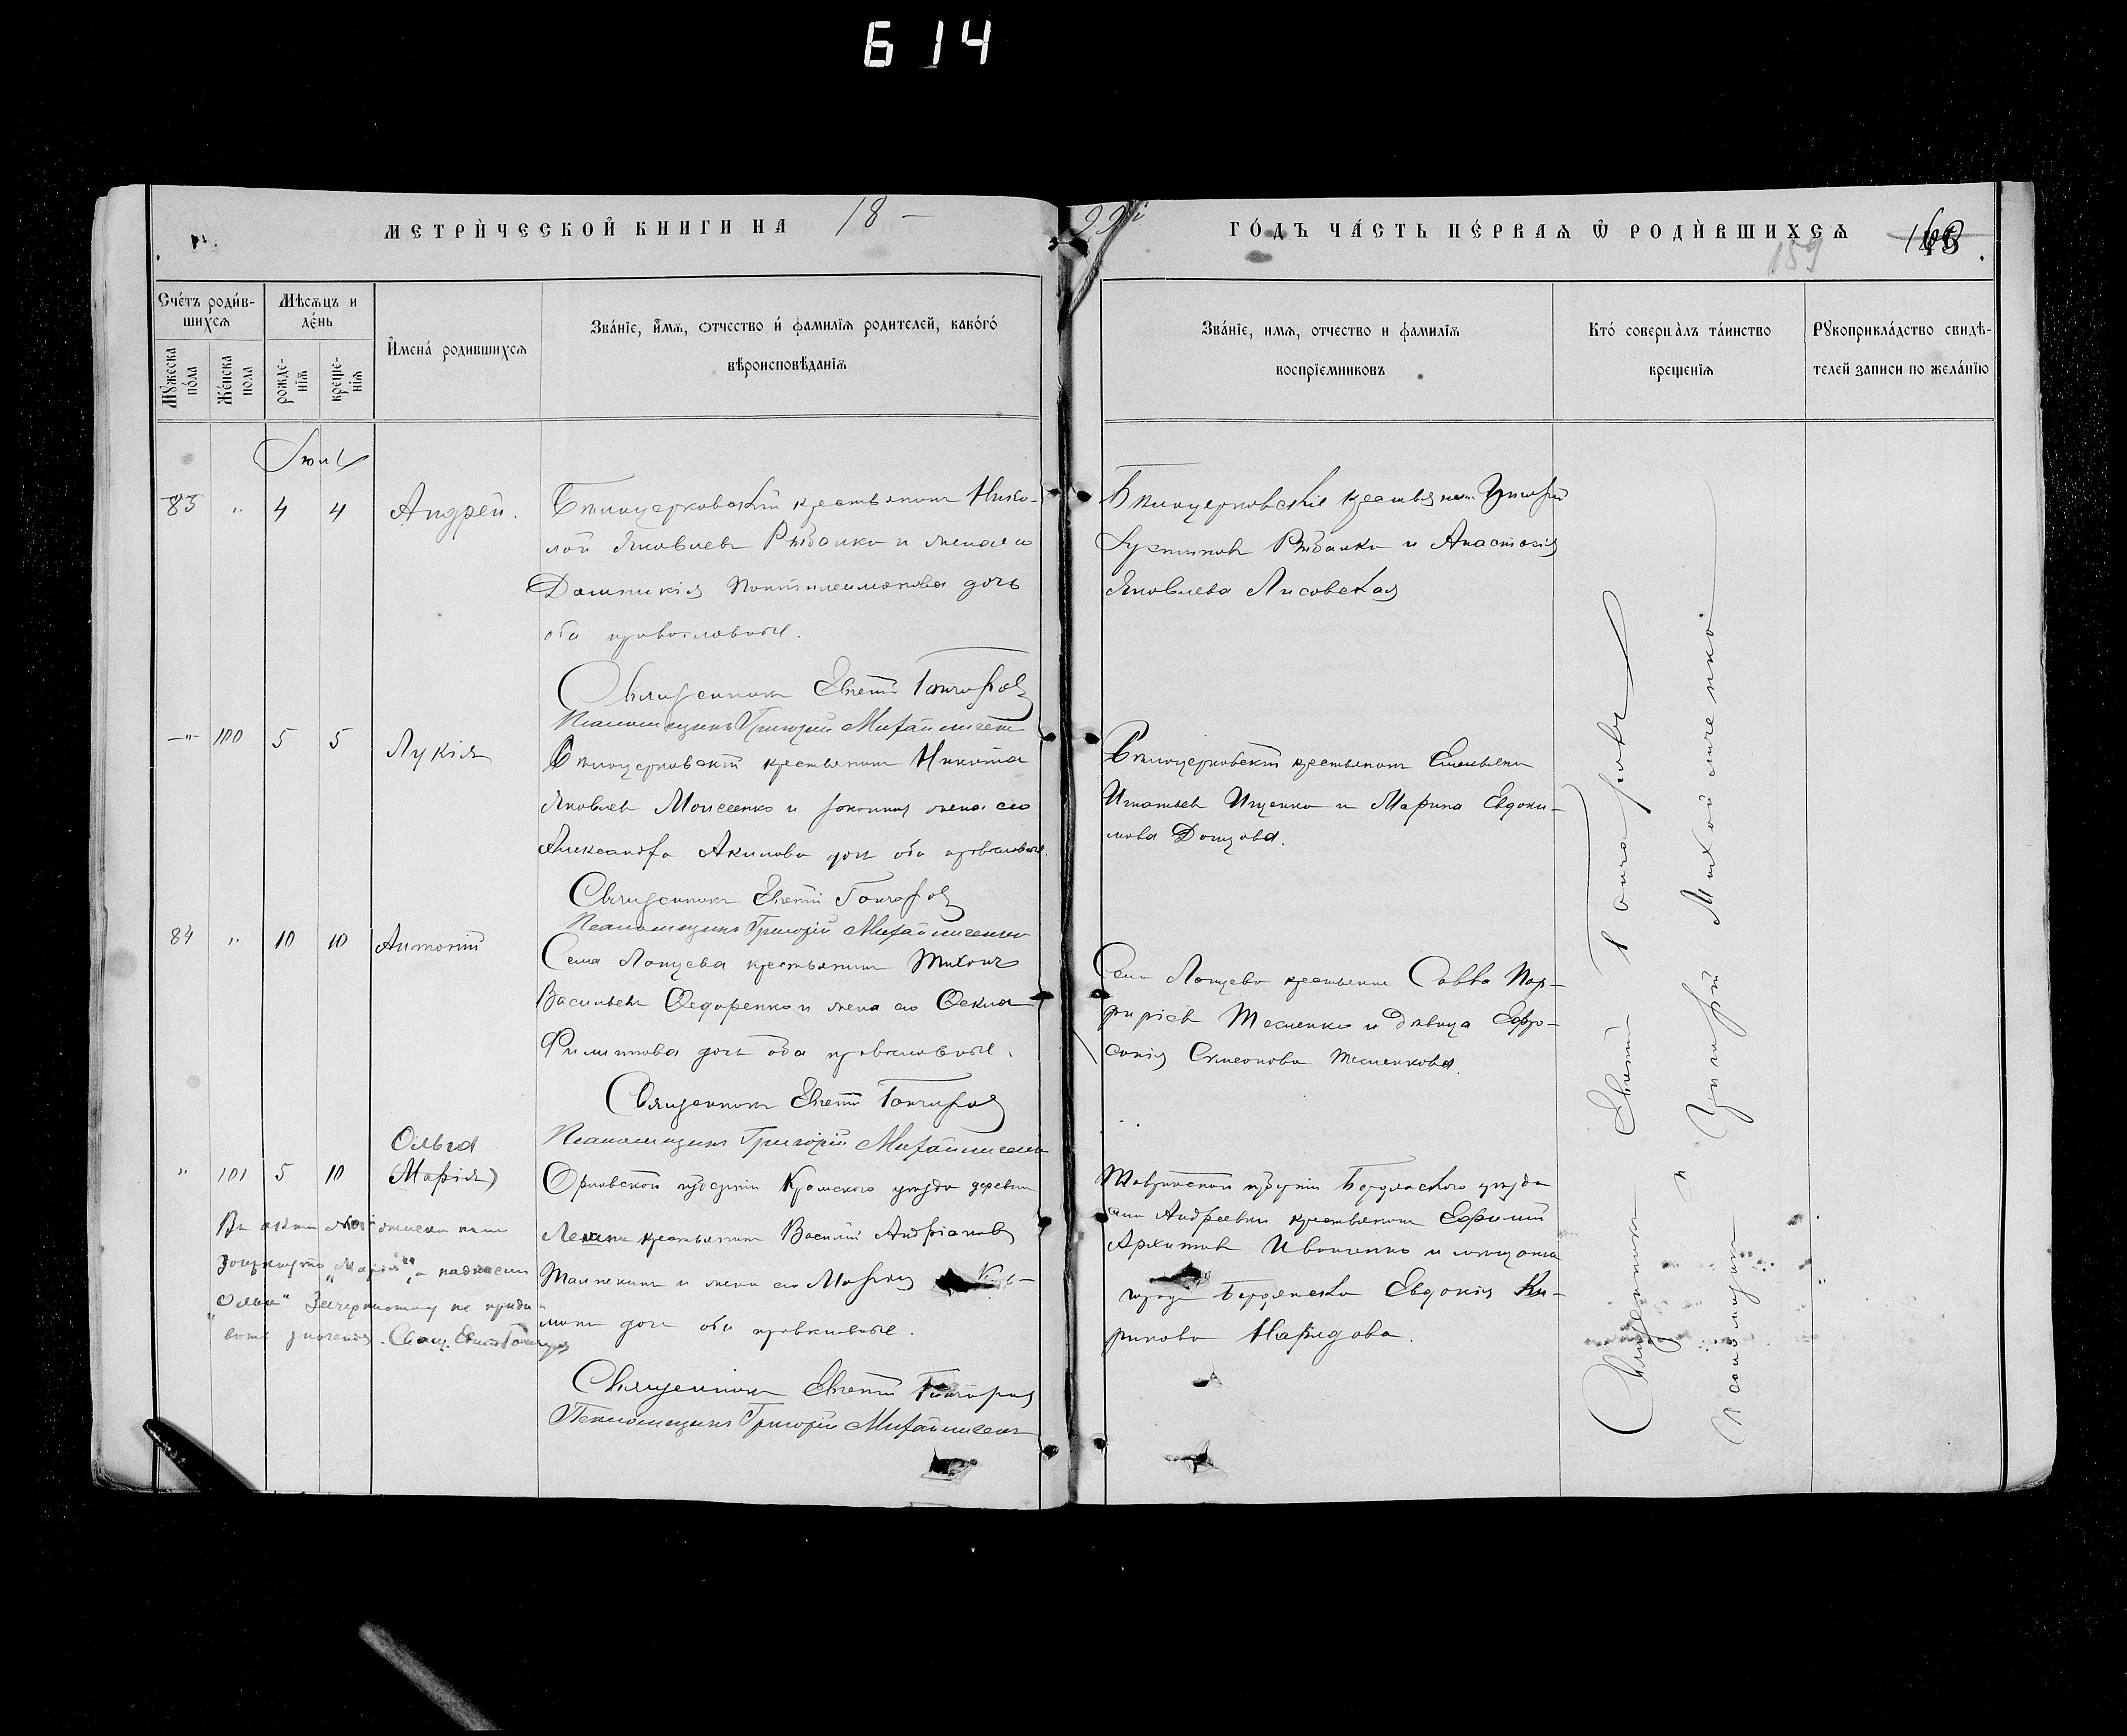 614
МЕТРИ́ЧЕСКОЙ КНИГИ НА 18 —
99 ГО́ДЪ ЧА́СТЬ ПЕ́РВАѦ Ѿ РОДИ́ВШИХСѦ
159
Сче́тъ роди́в-
шихсѧ
Мꙋжеска
по́ла
Же́нска
пола
Мѣсѧцъ и
де́нь
рожде-
нїѧ
креще-
нїѧ
И҆мена́ родившихсѧ
Зва́нїе, и҆́мѧ, ѻтчество и҆ фамилїѧ родителей, како́гѡ
вѣроисповѣданїѧ
Зва́нїе, имѧ, отчество и фамилїѧ
воспрїемниковъ
Кто́ соверша́лъ та́инство
крещенїѧ
Рꙋкоприкла́дство свидѣ-
телей записи по жела́нїю
Іюль
83 „ 4 4 Андрей.
Бѣлоцерковскій крестьянинъ Нико-
лай Яковлевъ Рыбалка и жена его
Домникія Пантилеимонова дочь
оба православные.
Священникъ Евгеній Гончаровъ
Псаломщикъ Григорій Михайличенко
Бѣлоцерковскіе крестьянинъ Григорій
Рыбалка и Анастасія
Яковлева Лисовская
—„— 100 5 5 Лукія
Бѣлоцерковскій крестьянинъ Никита
Яковлевъ Моисеенко и законная жена его
Александра Акимова дочь оба православные.
Священникъ Евгеній Гончаровъ
Псаломщикъ Григорій Михайличенко
Бѣлоцерковскій крестьянинъ Емельянъ
Игнатьевъ Ищенко и Марина Евдоки-
мова Донцова.
84 „ 10 10 Антоній
Села Попцева крестьянинъ Тихонъ
Васильевъ Ѳедоренко и жена его Ѳекла
Филиппова дочь оба православные.
Священникъ Евгеній Гончаровъ
Псаломщикъ Григорій Михайличенко
Села Попцева крестьянинъ Савва Пор-
фиріевъ Тесленко и дѣвица Ефро-
синія Симеонова Тесленкова.
Ольга
„ 101 5 10 (Марія)
Орловской губерніи Кромского уѣзда деревни
крестьянинъ Василій Андріановъ
и жена его Марія
дочь оба православные.
Священникъ Евгеній Гончаровъ
Псаломщикъ Григорій Михайличенко
Таврической губерніи Бердянского уѣзда
Андреевки крестьянинъ Ефимій
Архиповъ Иваненко и мѣщанка
города Бердянска Евдокія Ки-
рикова
зачеркнуто „Марія“, а надписано
„Ольга“ Зачеркнутому не прида-
вать значенія. Свящ. Евгеній Гончаровъ
Священникъ Евгеній Гончаровъ
и Псаломщикъ Григорій Михайличенко